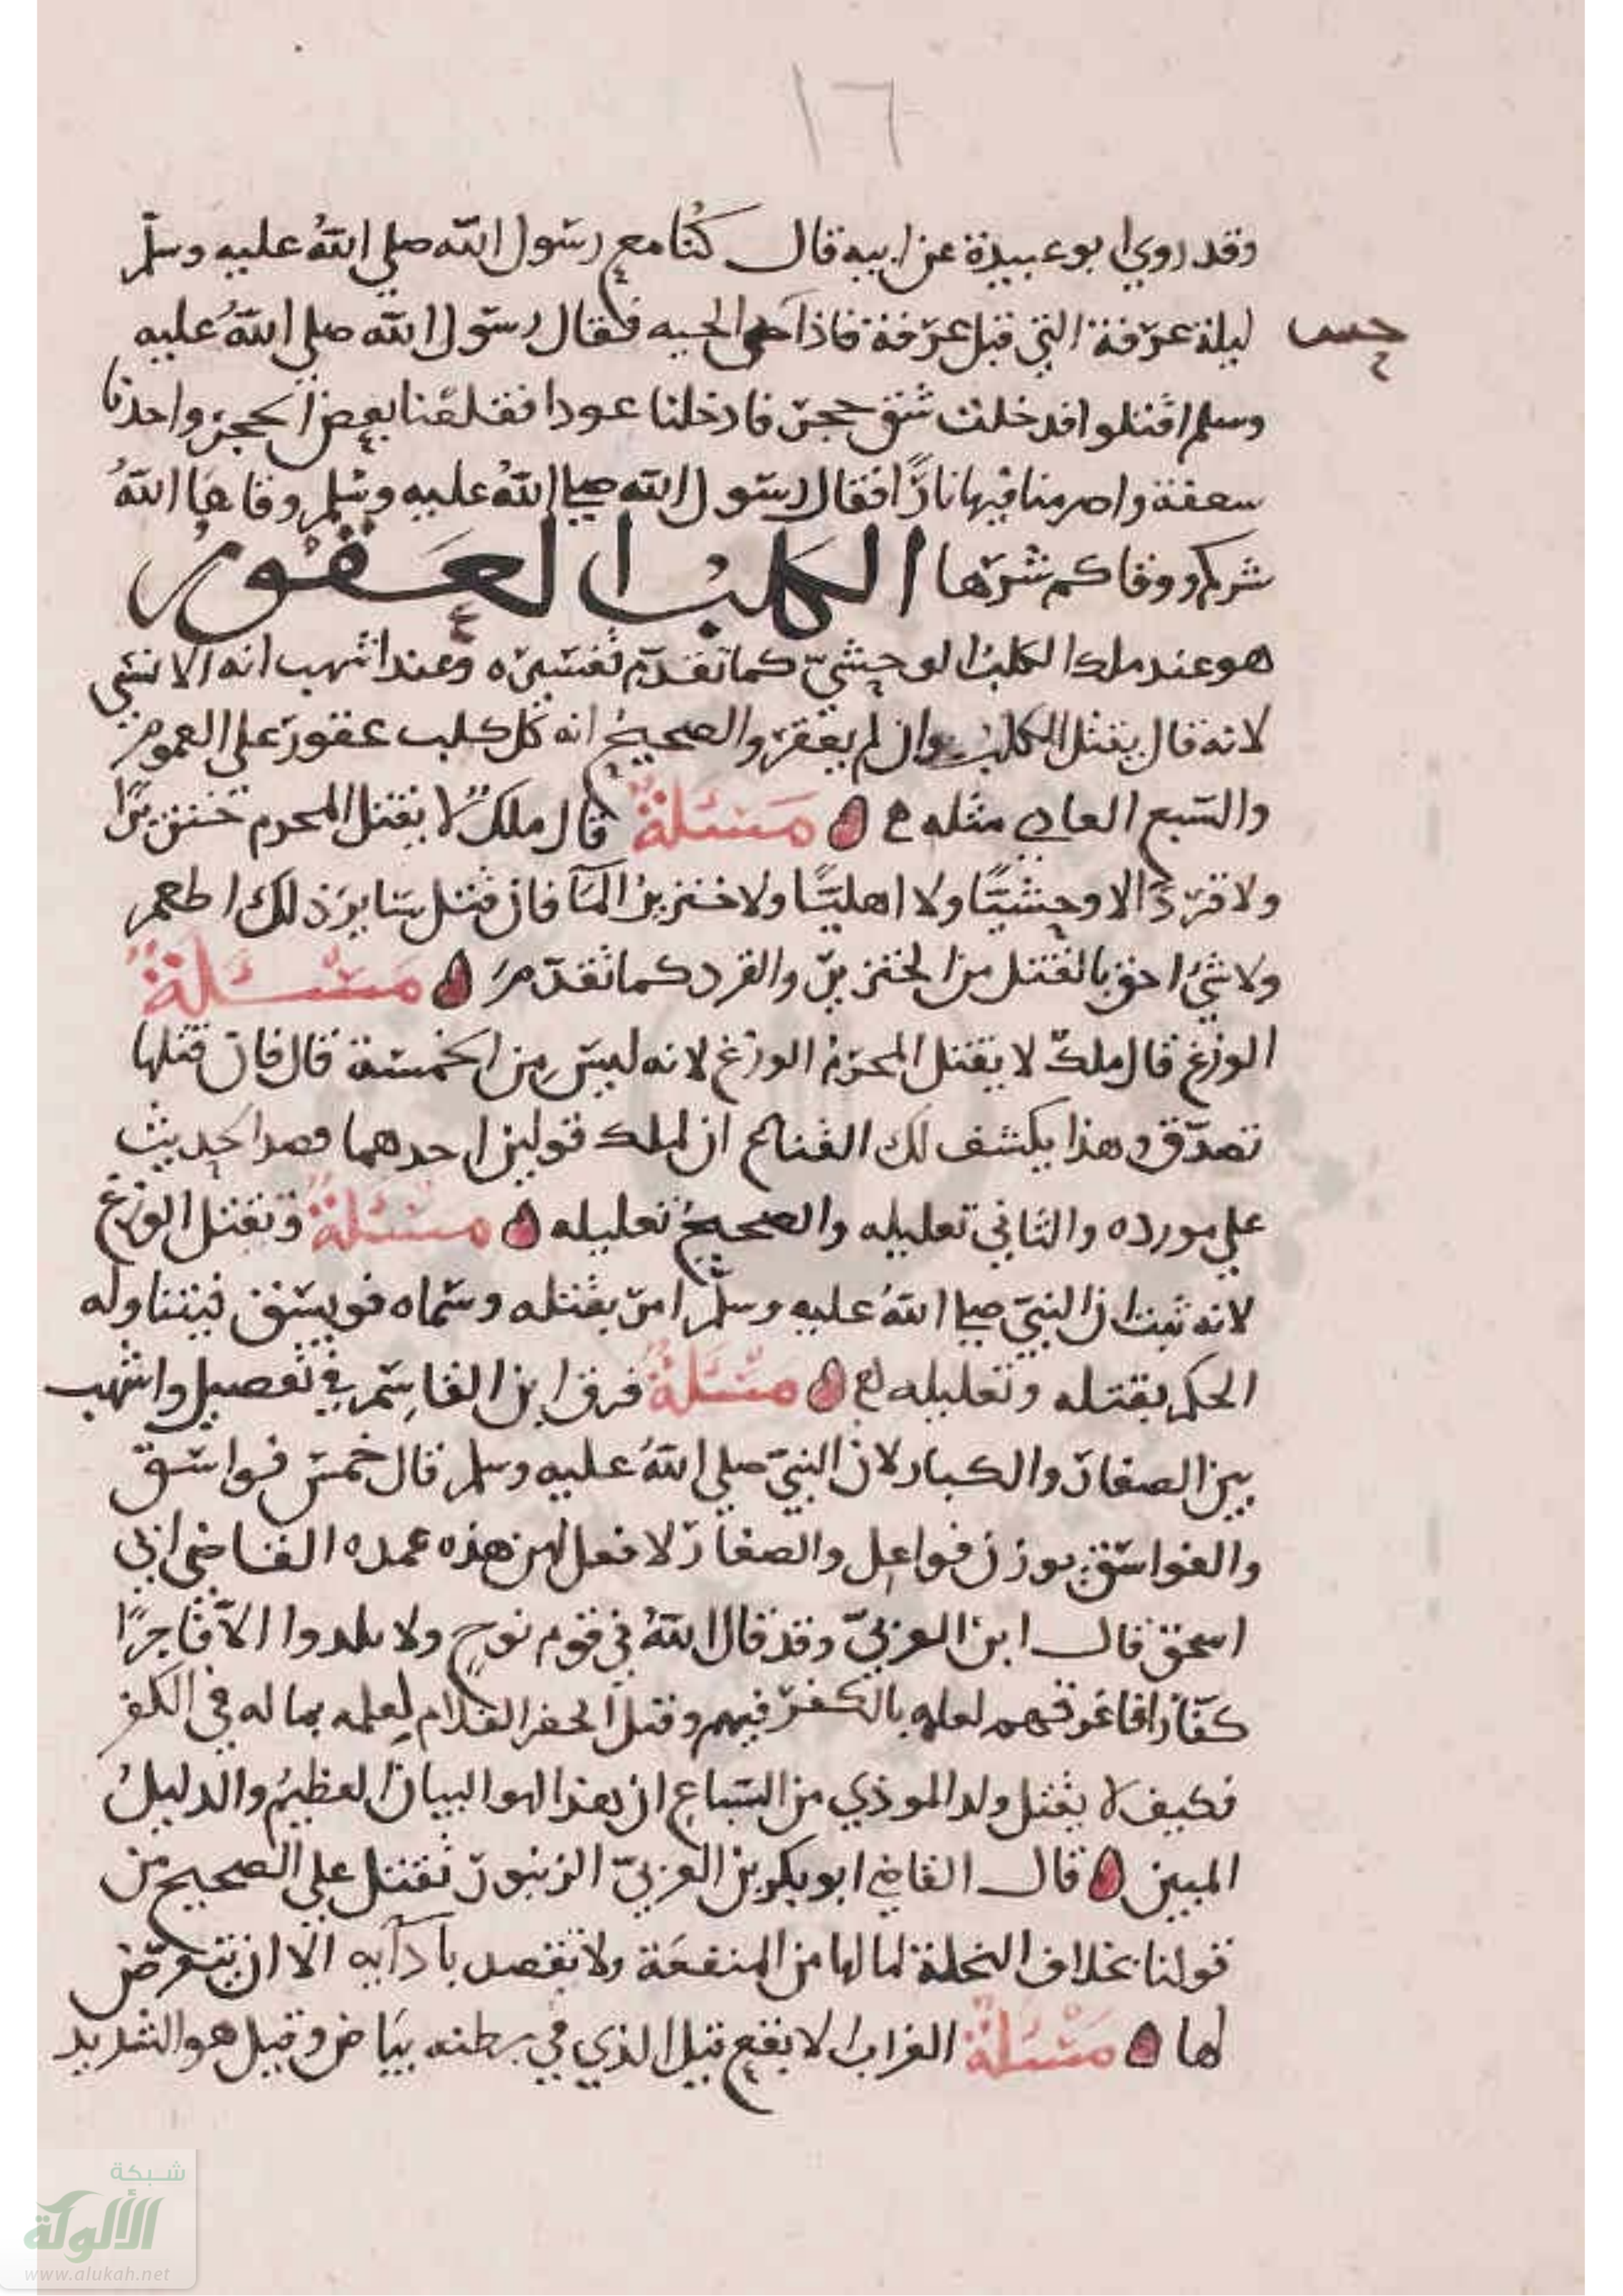 ١٦
وقد روي ابو عبيدة عن ابيه قال كنا مع رسول الله صلي الله عليه وسلم
ليلة عرفة التي قبل عرفة فاذا حس الحيه فقال رسول الله صلي الله عليه
حس
وسلم اقتلوا فدخلت شق حجر فادخلنا عودا فقلعنا بعض الحجر واخذنا
سعفة واضرمنا فيها نارًا فقال رسول الله صلي الله عليه وسلم وقاها الله
شركم ووقاكم شرها الكلب العقور
هو عند ملك الكلب الوحشيّ كما تقدم تفسيره وعند اشهب انه الانسي
لانه قال يقتل الكلب وان لم يعقر والصحيح انه كل كلب عقور علي العموم
والسبع العادي مثله مسئلة قال ملك لا يقتل المحرم خنزيرًا
ولا قردًا لا وحشيًّا ولا اهليًّا ولا خنزير المآ فان قتل سايرَ ذلك اطعم
ولا شيء احق بالقتل من الخنزير والقرد كما تقدم مسئلة
الوزغ قال ملك لا يقتل المحرم الوزغ لانه ليس من الخمسة قال فان قتلها
تصدّق وهذا يكشف لك القناع ان لملك قولين احدهما قصر الحديث
علي مورده والثاني تعليله والصحيح تعليله مسئلة وتقتل الوزغ
لانه ثبت ان النبيّ صلي الله عليه وسلم امر بقتله وسماه فويسق فيتناوله
الحكم بقتله وتعليله مسئلة فرق ابن القاسم في تفصيل واشهب
بين الصغار والكبار لان النبيّ صلي الله عليه وسلم قال خمس فواسق
والفواسق بوزن فواعل والصغار لا فعل لهن هذه عمده القاضي ابي
اسحق قال ابن العربيّ وقد قال الله في قوم نوح ولا يلدوا الا فاجرًا
كفارًا فاغرقهم لعلمه بالكفر فيهم وقتل الخضر الغلام لعلمه بماله في الكفر
فكيف لا يقتل ولد الموذي من السباع ان هذا لهو البيان العظيم والدليل
المبين قال القاضي ابو بكر بن العربيّ الزنبور تقتل علي الصحيح من
قولنا بخلاف النحلة لما لها من المنفعة ولا تقصد باذايه الا ان يتعرض
لها مسئلة الغراب الابقع قيل الذي في بطنه بياض وقيل هو الشديد
شبكة
الألوكة
www.alukah.net